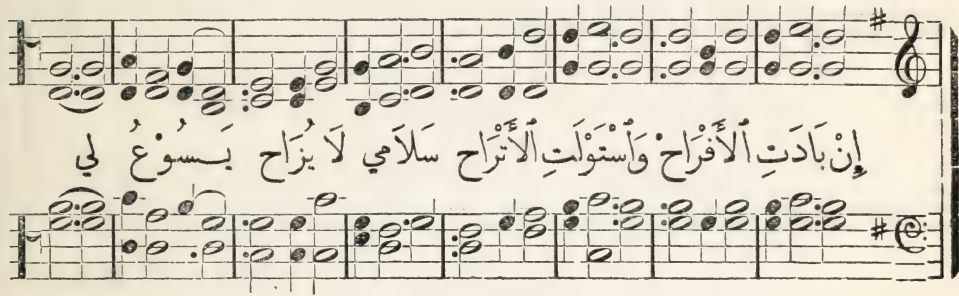 إِنْ بَادَتِ ٱلْأَفْرَاحْ وَٱسْتَوْلَتِ ٱلْأَتْرَاح سَلَامي لَا يُزَاح يَـسُوْعُ لي